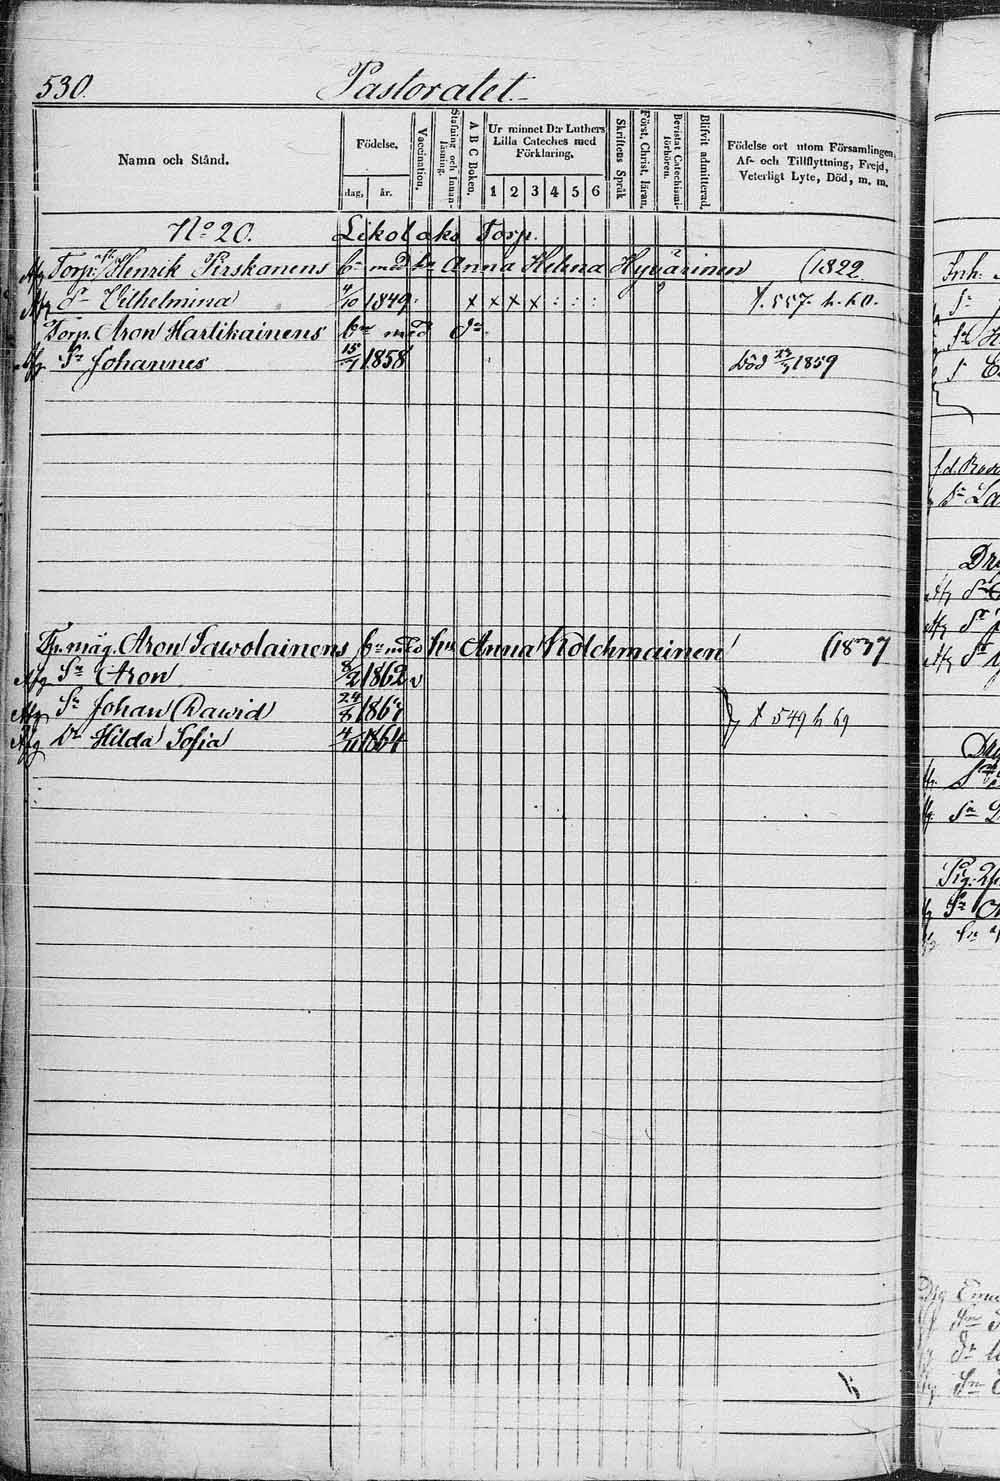 530.
Pastoratet.
Namn och Stånd.
Födelse.
dag, år.
Vaccination.
Stafning och Innanläsning.
A B C Boken.
Ur minnet D:r Luthers Lilla Cateches med Förklaring.
1 2 3 4 5 6
Skriftens Språk
Först. Christ. läran.
Bevistat Catechismiförhören.
Blifvit admitterad.
Födelse ort utom Församlingen, Af- och Tillflyttning, Frejd, Veterligt Lyte, Död, m. m.
No 20. Likolaks Torp.
Torp. Henrik Pirskanens bn med hu Anna Helena Hyvärinen (1822
Afg dr Vilhelmina 4/10 1849. x x x x : : : f. 557. h. 60.
Torp. Aron Hartikainens bn med do
Afg Sn Johannes 15/7 1858 Död 23/7 1859
Tp. måg. Aron Sawolainens bn med hu Anna Kolehmainen (1837
Afg Sn Aron 8/2 1862 v
Afg Sn Johan Dawid 24/8 1867
Afg Dr Hilda Sofia 4/11 1864
f 549 h 69